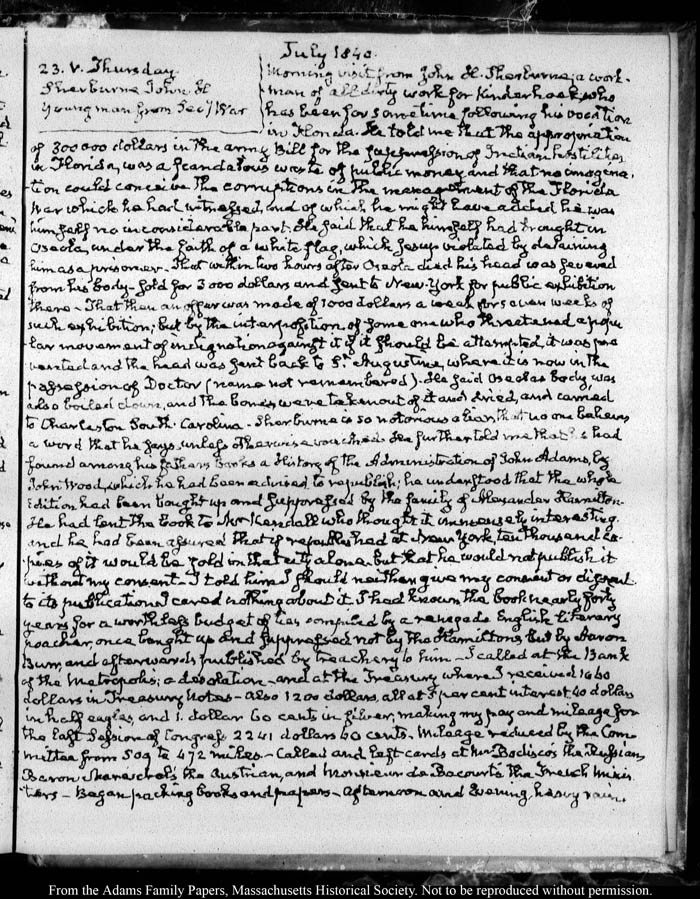 July 1840.
23. V. Thursday.
Sherburne John H
Young man from Secy War
Morning visit from John H. Sherburne, a work-
man of all dirty work for Kinderhook, who
has been for some time following his vocation
in Florida. He told me that the appropriation
of 300000 dollars in the army Bill for the suppression of Indian hostilities
in Florida, was a scandalous waste of public money and that no imagina-
tion could conceive the corruptions in the management of the Florida
War which he had witnessed, and of which he might have added he was
himself no inconsiderable part. He said that he himself had brought in
Oseola, under the faith of a white flag, which Jesup violated by detaining
him as a prisoner. That within two hours after Oseola died his head was severed
from his body—sold for 3000 dollars and sent to New-York for public exhibition
there—That then an offer was made of 1000 dollars a week for seven weeks of
such exhibition; but by the interposition of some one who threatened a popu-
lar movement of indignation against it if it should be attempted, it was pre
vented and the head was sent back to St. Augustine, where it is now in the
possession of Doctor (name not remembered). He said Oseolas body was
also boiled down, and the bones were taken out of it and dried, and carried
to Charleston South-Carolina—Sherburne is so notorious a liar, that no one believes
a word that he says, unless otherwise vouched. He further told me that he had
found among his fathers books a History of the Administration of John Adams, by
John Wood, which he had been advised to republish; he understood that the whole
Edition had been bought up and suppressed by the family of Alexander Hamilton.
He had lent the book to Mr Kendall who thought it immensely interesting.
and he had been assured that if republished at New York, ten thousand co-
pies of it would be sold in that city alone. but that he would not publish it
without my consent. I told him I should neither give my consent or dissent
to its publication. I cared nothing about it. I had known the book nearly forty
years for a worthless budget of lies compiled by a renegade English literary
poacher, once bought up and suppressed not by the Hamiltons, but by Aaron
Burr, and afterwards published by treachery to him—I called at the Bank
of the Metropolis; a desolation—and at the Treasury where I received 1040
dollars in Treasury Notes—also 1200 dollars, all at 5 per cent interest, 40 dollars
in half eagles, and 1. dollar 60 cents in silver, making my pay and mileage for
the last Session of Congress 2241 dollars 60 cents. Mileage reduced by the Com
mittee from 509 to 472 miles.—Called and left cards at Mr Bodisco's the Russian,
Baron Mareschal's the Austrian, and Monsieur de Bacourt's the French Minis
ters—Began packing books and papers—Afternoon and Evening heavy rain.
From the Adams Family Papers, Massachusetts Historical Society. Not to be reproduced without permission.